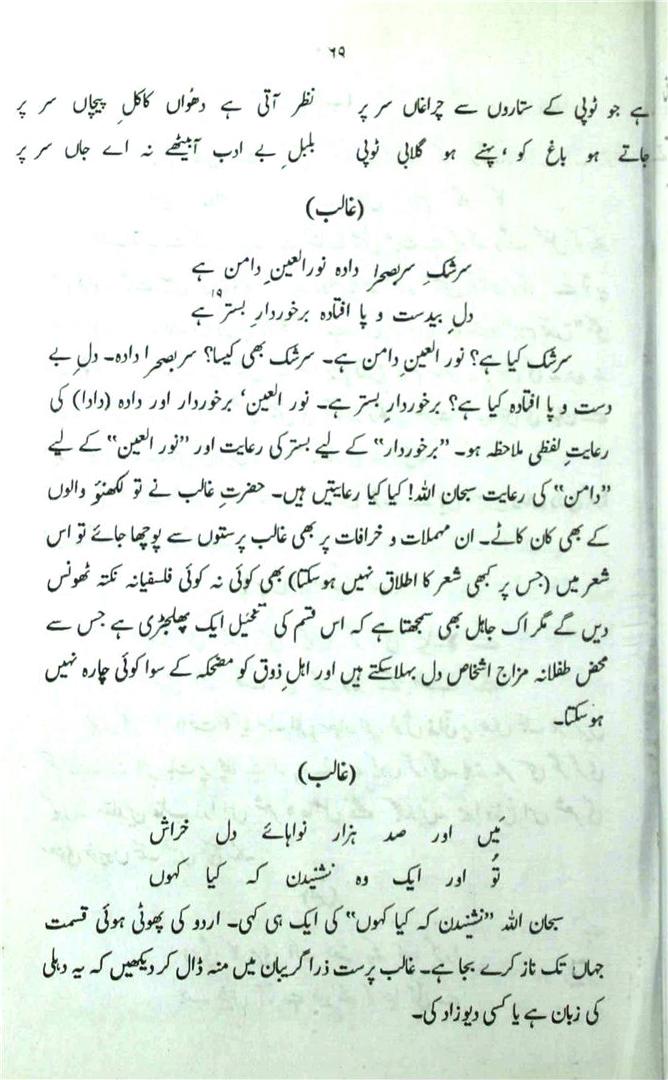 ۶۹
ہے جو ٹوپی کے ستاروں سے چراغاں سر پر نظر آتی ہے دھُواں کاکلِ پیچاں سر پر
جاتے ہو باغ کو، پہنے ہو گلابی ٹوپی بلبلِ بے ادب آبیٹھے نہ اے جاں سر پر
(غالب)
سرشکِ سربصحرا دادہ نورالعینِ دامن ہے
دلِ بیدست و پا افتادہ برخوردارِ بستر۱۹ ہے
سرشک کیا ہے؟ نور العینِ دامن ہے۔ سرشک بھی کیسا؟ سربصحرا دادہ۔ دلِ بے
دست و پا افتادہ کیا ہے؟ برخوردارِ بستر ہے۔ نور العین‘ برخوردار اور دادہ (دادا) کی
رعایتِ لفظی ملاحظہ ہو۔ ”برخوردار“ کے لیے بستر کی رعایت اور ”نور العین“ کے لیے
”دامن“ کی رعایت سبحان اللہ! کیا کیا رعایتیں ہیں۔ حضرتِ غالب نے تو لکھنؤ والوں
کے بھی کان کاٹے۔ ان مہملات و خرافات پر بھی غالب پرستوں سے پوچھا جائے تو اس
شعر میں (جس پر کبھی شعر کا اطلاق نہیں ہوسکتا) بھی کوئی نہ کوئی فلسفیانہ نکتہ ٹھونس
دیں گے مگر اک جاہل بھی سمجھتا ہے کہ اس قسم کی تخئیل ایک پھلجھڑی ہے جس سے
محض طفلانہ مزاج اشخاص دل بہلاسکتے ہیں اور اہلِ ذوق کو مضحکہ کے سوا کوئی چارہ نہیں
ہوسکتا۔
(غالب)
مَیں اور صد ہزار نواہائے دل خراش
تُو اور ایک وہ نشنیدن کہ کیا کہوں
سبحان اللہ ”نشنیدن کہ کیا کہوں“ کی ایک ہی کہی۔ اردو کی پھوٹی ہوئی قسمت
جہاں تک ناز کرے بجا ہے۔ غالب پرست ذرا گریبان میں منہ ڈال کر دیکھیں کہ یہ دہلی
کی زبان ہے یا کسی دیوزاد کی۔